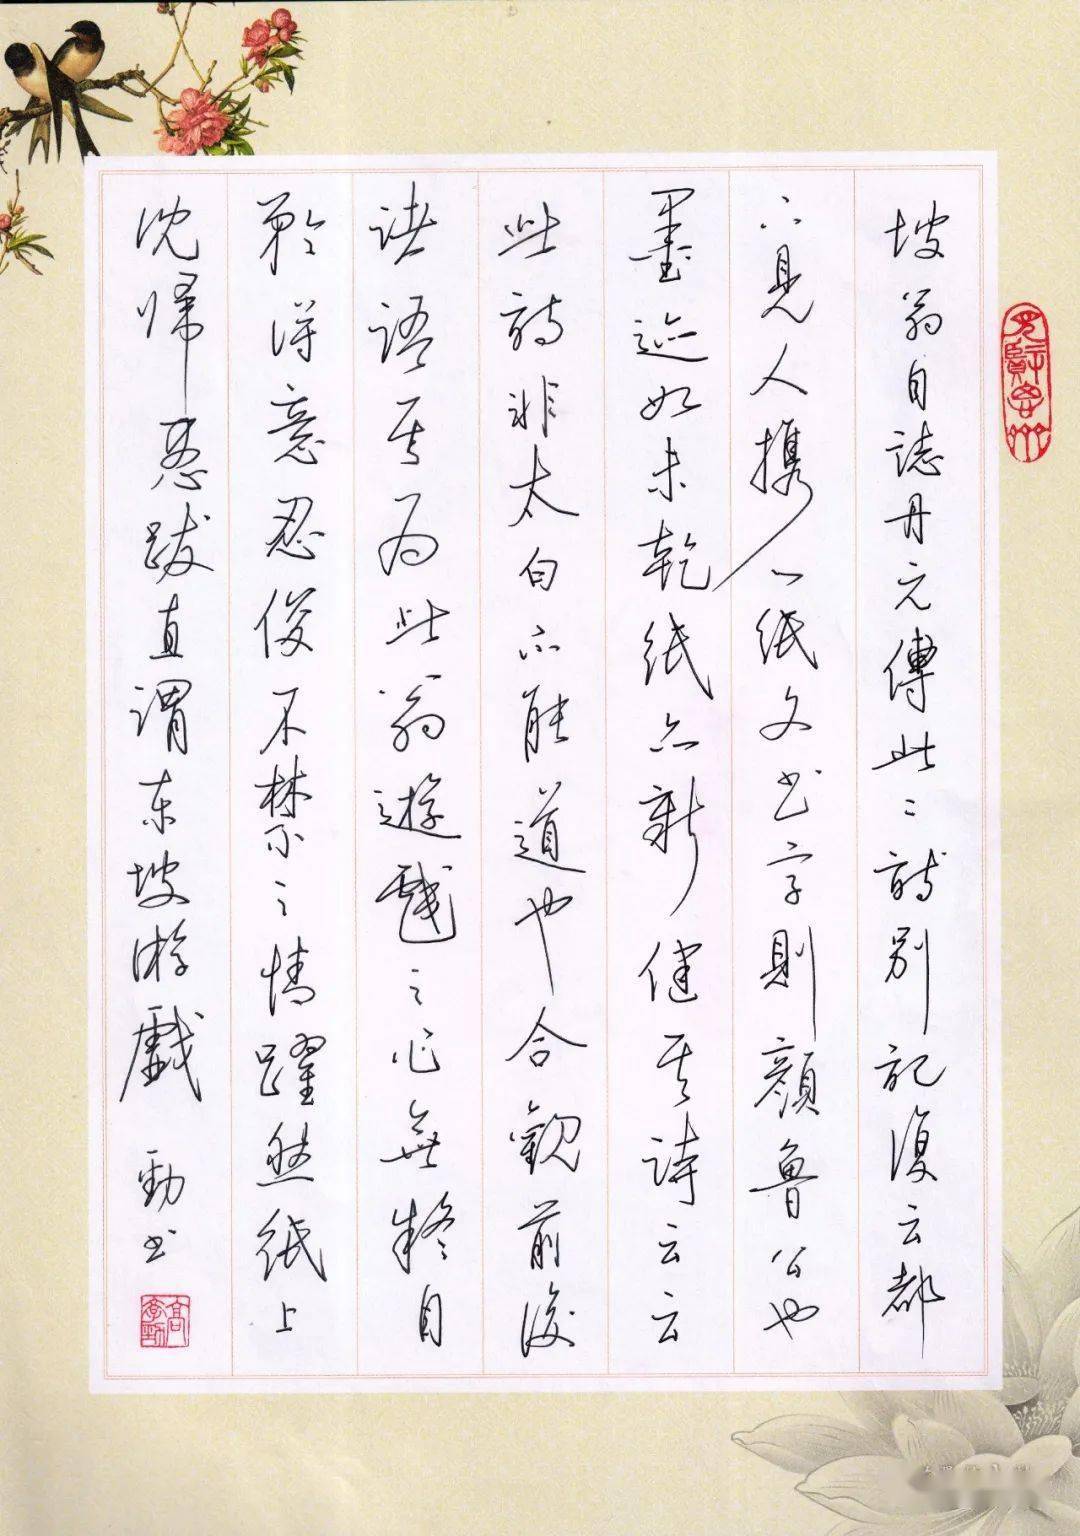 坡翁自誌丹元傳此二詩別記復云都
下見人携一紙文书字則顔魯公也
墨迹如未乾紙亦新健其诗云云
此詩非太白不能道也合觀前後
誌語其为此翁遊戲之心無疑自
矜得意忍俊不禁之情躍然纸上
沈帰愚跋直谓东坡游戲 勁书